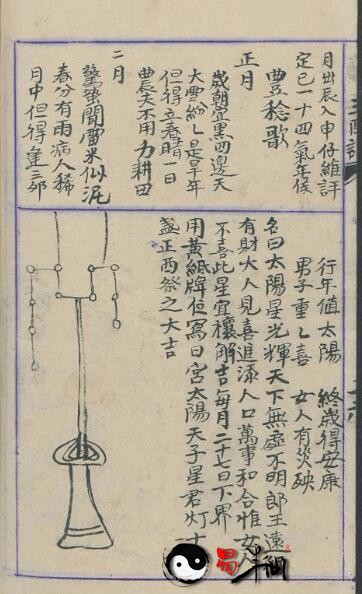 月出辰入申仔維詳
定巳一十四氣年候
豊稔歌
正月
歲朝宜黑四邊天
大雪紛乚是丰年
但得立春晴一日
農夫不用力耕田
二月
驚蟄聞雷米似泥
春分有雨病人稀
月中但得逢三卯
行年值太陽 終歲得安康
男子重乚喜 女人有災殃
名曰太陽星光輝天下無虛不明郎王遠
有財大人見喜進添人口萬事和合惟女人
不喜此星宜禳解吉每月二十七日下界
用黃紙牌位寫日宮太陽天子星君灯十
盞正西祭之大吉
易
網